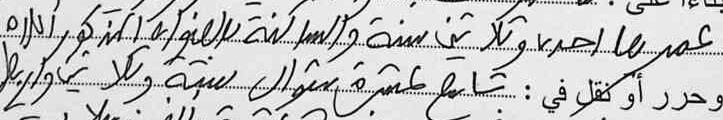 عمرها احدى وثلاثين سنة والساكنة بالعنوان المذكور أعلاه
وحرر أو نقل في : تاسع عشرة شوال ستة وثلاثين وأربع